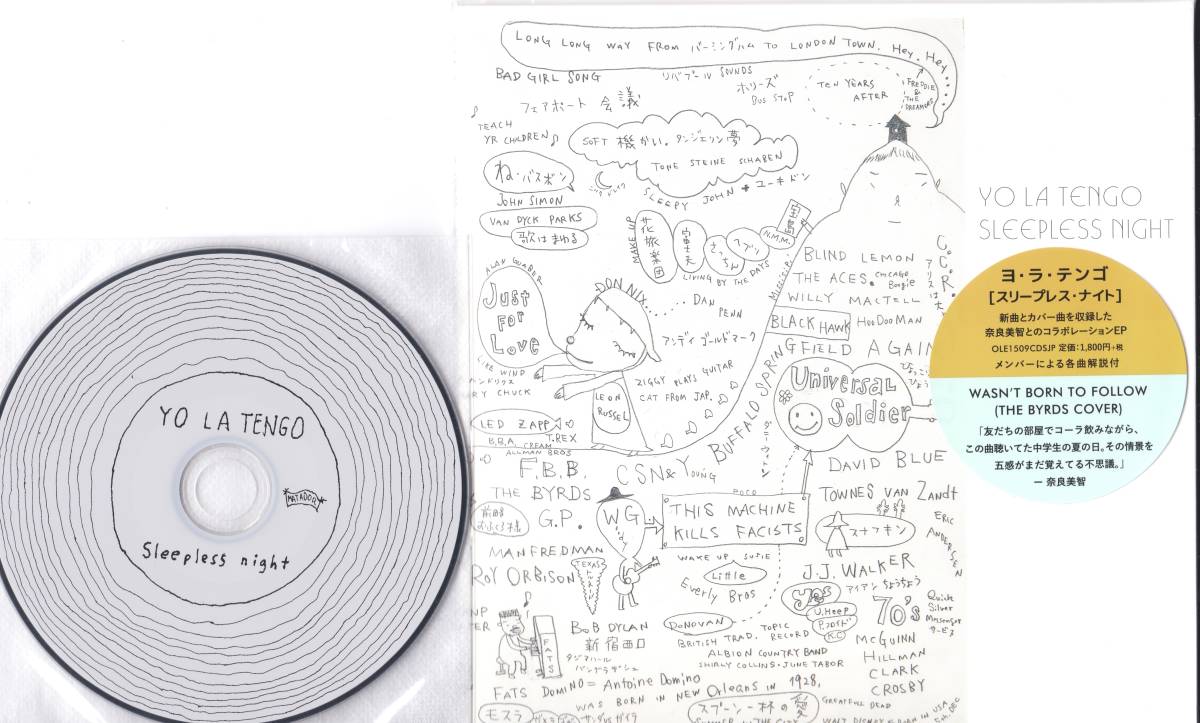 LONG LONG WAY FROM バーミングハム TO LONDON TOWN. Hey. Hey....
BAD GIRL SONG
リバプール SOUNDS
ホリーズ
BUS STOP
TEN YEARS
AFTER
FREDDIE
&
THE
DREAMERS
フェアポート 会議
TEACH
YR CHILDREN
SOFT 機かい。タンジェリン夢
TONE STEINE SCHABEN
ね・バスボン
SLEEPY JOHN + ユーキドン
JOHN SIMON
VAN DYCK PARKS
歌はまわる
MAKE UP
花旅楽団
富士夫
さっちん
ヘブン
N.M.M.
宝島
LIVING BY THE DAYS
ALAN GUABER
Just
For
Love
DON NIX...
... DAN
PENN
アンディ ゴールドマーク
BLIND LEMON
THE ACES.
CHICAGO
Boogie
WILLY MACTELL
BLACK HAWK
HooDoo MAN
C.C.R.
LIKE WIND
RY CHUCK
LEON
RUSSEL
ZIGGY PLAYS GUITAR
CAT FROM JAP.
BUFFALO SPRINGFIELD AGAIN
Universal
Soldier
LED ZAPP
B.B.A.
CREAM
T.REX
ALLMAN BROS
F.B.B.
CSN & Young
ダニーウィットン
DAVID BLUE
THE BYRDS
G.P.
WG
POCO
THIS MACHINE
KILLS FACISTS
TOWNES VAN Zandt
スナフキン
ERIC
ANDERSEN
MANFREDMAN
ROY ORBISON
TEXAS
WAKE UP SUZIE
Little
Everly Bros
J.J. WALKER
アイアン ちょうちょう
yes
U.HeeP
P.フロイド
K.C
70's
Quick
Silver
Messenger
サービス
FATS
BOB DYLAN
新宿西口
タジマハール
バングラデシュ
DONOVAN
TOPIC
BRITISH TRAD. RECORD
ALBION COUNTRY BAND
SHIRLY COLLINS・JUNE TABOR
McGUINN
HILLMAN
CLARK
CROSBY
FATS DOMINO = Antoine Domino
WAS BORN IN NEW Orleans IN 1928,
モスラ
スプーン一杯の愛
GREATFULL DEAD
YO LA TENGO
SLEEPLESS NIGHT
ヨ・ラ・テンゴ
[スリープレス・ナイト]
新曲とカバー曲を収録した
奈良美智とのコラボレーションEP
OLE1509CDSJP 定価:1,800円+税
メンバーによる各曲解説付
WASN'T BORN TO FOLLOW
(THE BYRDS COVER)
「友だちの部屋でコーラ飲みながら、
この曲聴いてた中学生の夏の日。その情景を
五感がまだ覚えてる不思議。」
— 奈良美智
YO LA TENGO
MATADOR
Sleepless night